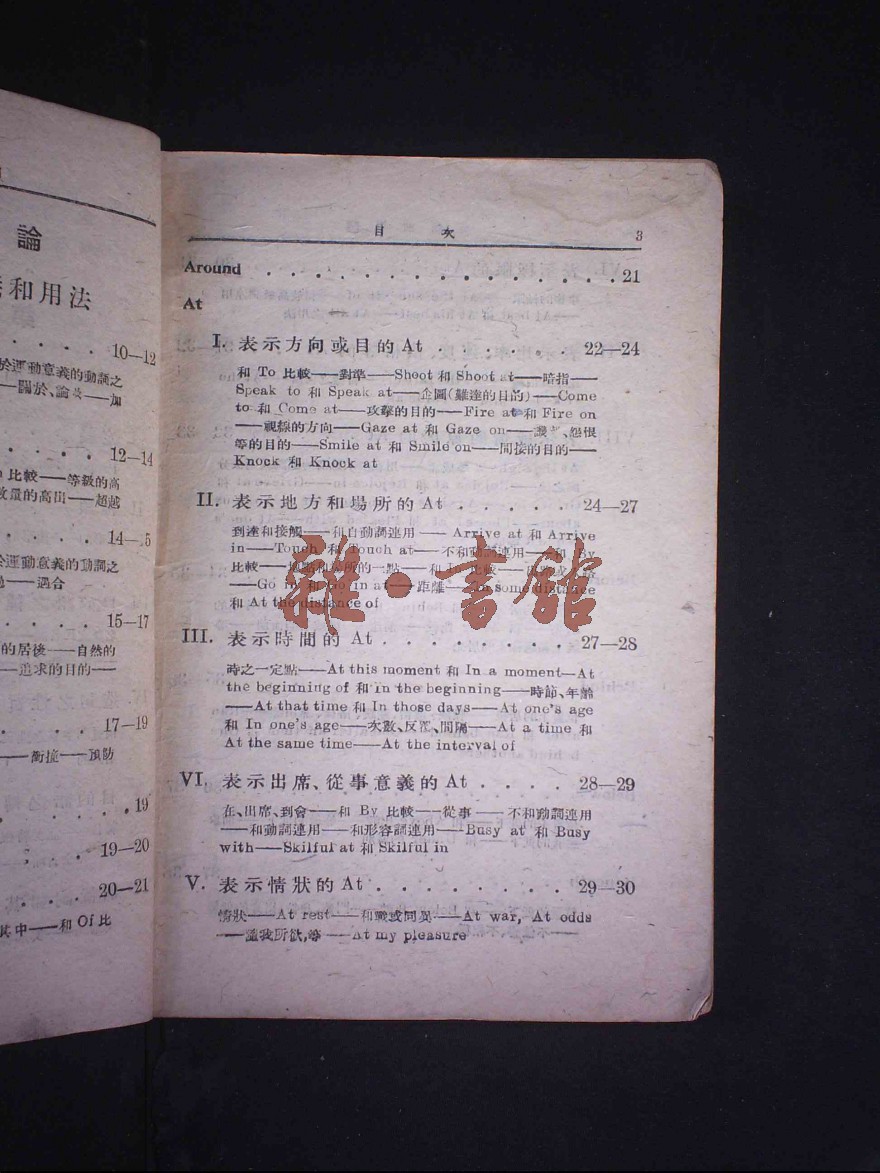 論
和用法
10—12
於運動意義的動詞之
——關於、論及——加
12—14
比較——等級的高
數量的高出——超越
14—15
於運動意義的動詞之
——遇合
15—17
的居後——自然的
——追求的目的——
17—19
——衝撞——預防
19
19—20
20—21
其中——和 Of 比
目 次 3
Around . . . . . . . . . . . . . . . . 21
At
I. 表示方向或目的 At . . . . . . 22—24
和 To 比較——對準——Shoot 和 Shoot at——暗指——
Speak to 和 Speak at——企圖(難達的目的)——Come
to 和 Come at——攻擊的目的——Fire at 和 Fire on
——視線的方向——Gaze at 和 Gaze on——譏笑、怨恨
等的目的——Smile at 和 Smile on——間接的目的——
Knock 和 Knock at
II. 表示地方和場所的 At . . . . . . 24—27
到達和接觸——和自動詞連用——Arrive at 和 Arrive
in——Touch 和 Touch at——不和動詞連用——和 By
比較——地點和場所的一點——和 比較
——Go in at——距離——At some distance
和 At the distance of
雜·書舘
III. 表示時間的 At . . . . . . . . . 27—28
時之一定點——At this moment 和 In a moment—At
the beginning of 和 in the beginning——時節、年齡
——At that time 和 In those days——At one's age
和 In one's age——次數、反覆、間隔——At a time 和
At the same time——At the interval of
VI. 表示出席、從事意義的 At . . . . 28—29
在、出席、到會——和 By 比較——從事——不和動詞連用
——和動詞連用——和形容詞連用——Busy at 和 Busy
with——Skilful at 和 Skilful in
V. 表示情狀的 At . . . . . . . . . 29—30
情狀——At rest——和戰或同異——At war, At odds
——隨我所欲,等——At my pleasure